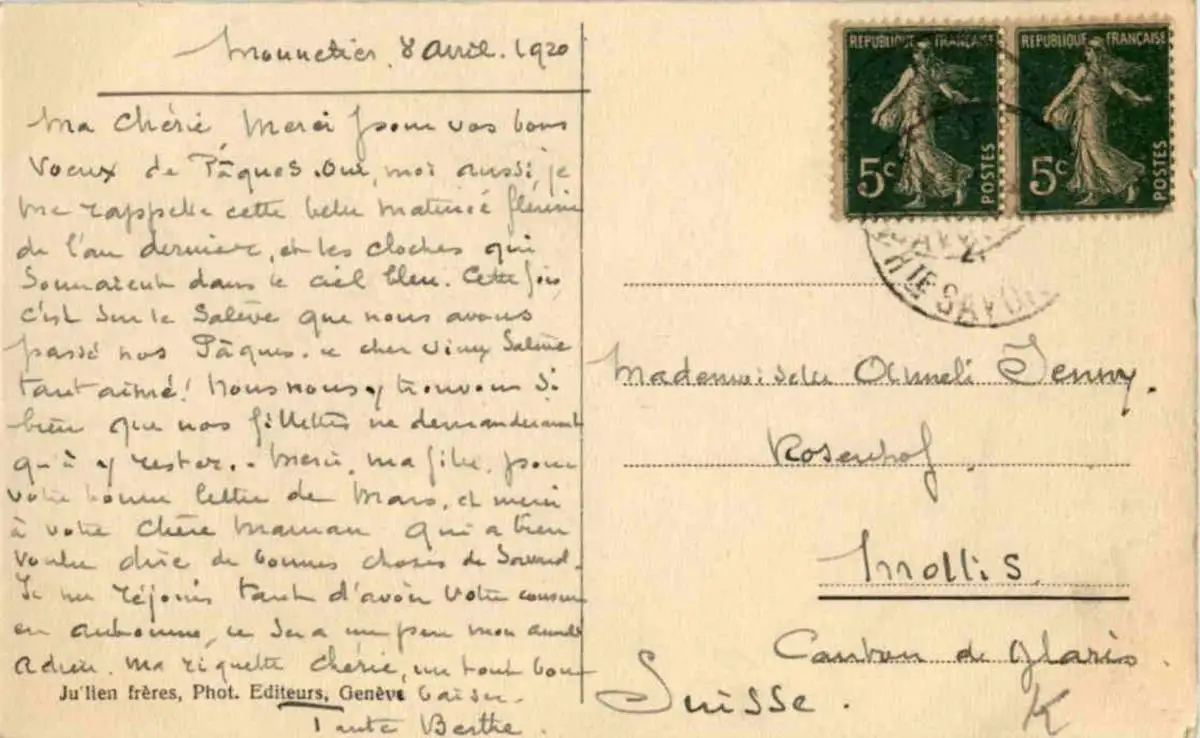 Monnetier, 8 avril. 1920
Ma Chérie Merci pour vos bons
voeux de Pâques. Oui, moi aussi je
me rappelle cette belle matinée fleurie
de l'an dernier, et les cloches qui
sonnaient dans le ciel bleu. Cette fois
c'est sur le Salève que nous avons
passé nos Pâques. ce cher vieux Salève
tant aimé! Nous nous y trouvons si
bien que nos fillettes ne demanderaient
qu'à y rester. - Merci, ma fille, pour
votre bonne lettre de Mars, et merci
à votre chère Maman qui a bien
voulu dire de bonnes choses de
Je me réjouis tant d'avoir votre
en automne, ce sera un peu mon
Adieu. Ma Riquette chérie, un tout bon
baiser.
Tante Berthe.
Ju'lien frères, Phot. Editeurs, Genève
REPUBLIQUE FRANÇAISE
5c
POSTES
REPUBLIQUE FRANÇAISE
5c
POSTES
HTE SAVOIE
Mademoiselle Anneli Jenny.
Rosenhof.
Mollis.
Canton de Glaris.
Suisse.
K